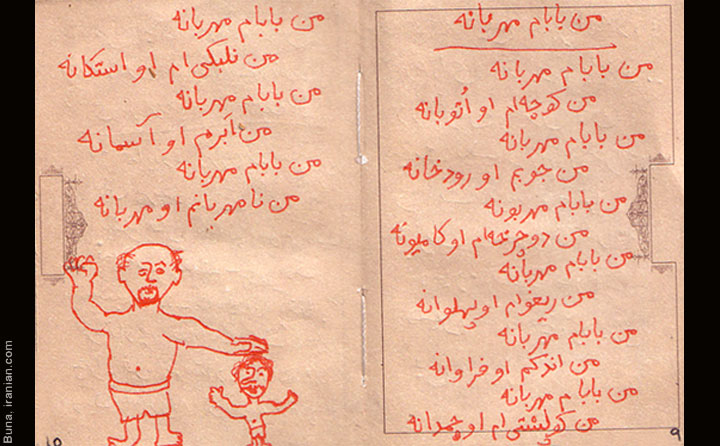 من بابام مهربانه
من بابام مهربانه
من کوچه‌ام او اُتوبانه
من بابام مهربانه
من جویم او رودخانه
من بابام مهربونه
من دوچرخه‌ام او کامیونه
من بابام مهربانه
من ریغوام او پهلوانه
من بابام مهربانه
من اندکم او فراوانه
من بابام مهربانه
من کولپشتی‌ام او چمدانه
۹
من بابام مهربانه
من نلبکی‌ام او استکانه
من بابام مهربانه
من ابرم او آسمانه
من بابام مهربانه
من نامهربانم او مهربانه
۱۰
Buna, iranian.com